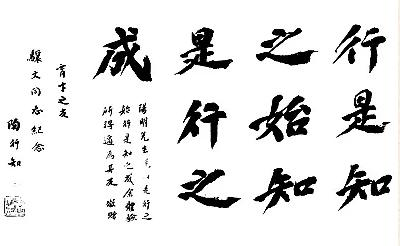 行是知
之始知
是行之
成
陽明先生是行之
始行是知之成余體驗
所得適為其反 敬贈
育才之友
文同志紀念
陶行知